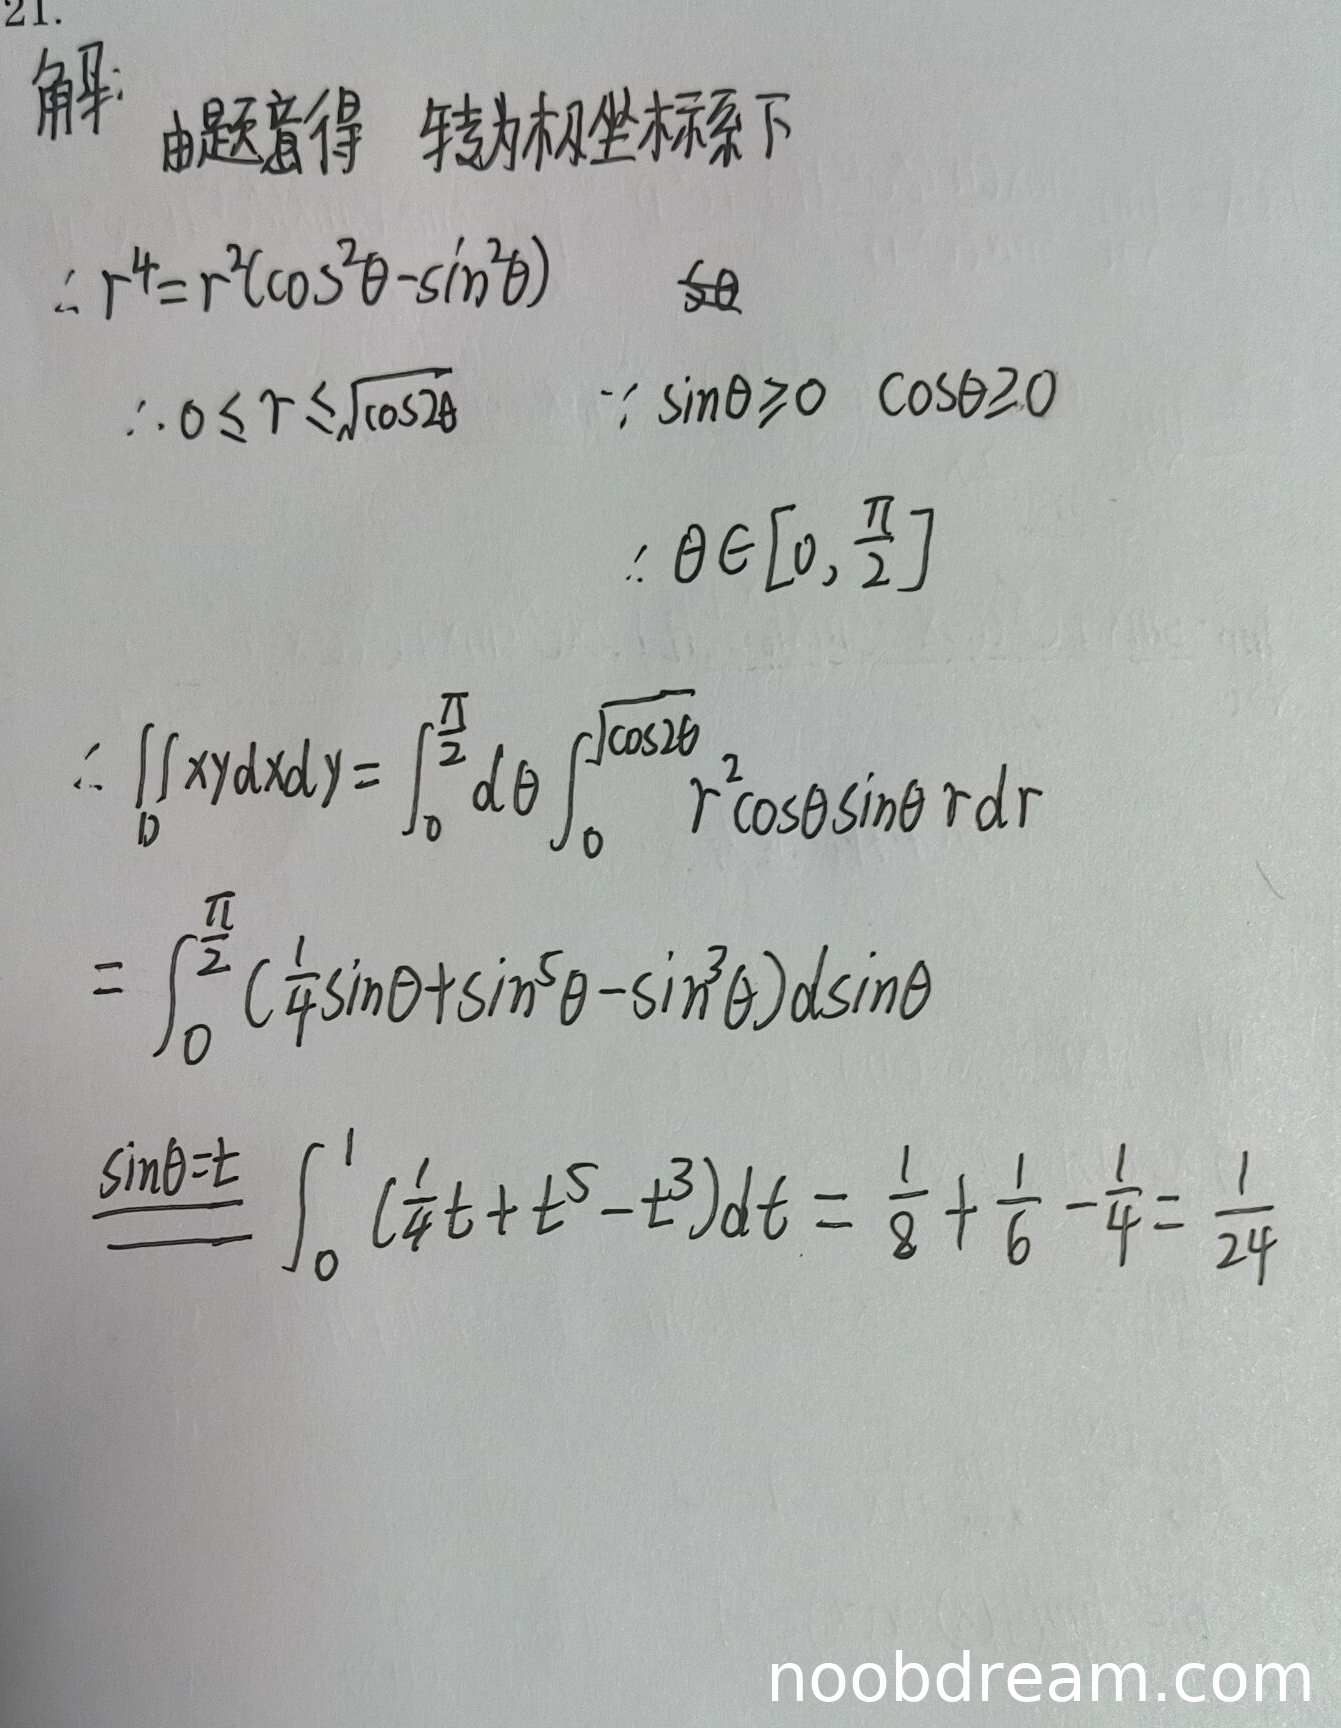 21.
解:
由题意得 转为极坐标系下
∴ r⁴=r²(cos²θ-sin²θ)
∴ 0≤r≤√cos2θ ∵ sinθ≥0 cosθ≥0
∴ θ∈[0, π/2]
∴ ∬_D xydxdy = ∫₀^(π/2) dθ ∫₀^(√cos2θ) r²cosθsinθ rdr
= ∫₀^(π/2) (1/4 sinθ+sin⁵θ-sin³θ)dsinθ
sinθ=t ∫₀¹ (1/4 t + t⁵ - t³)dt = 1/8 + 1/6 - 1/4 = 1/24
noobdream.com